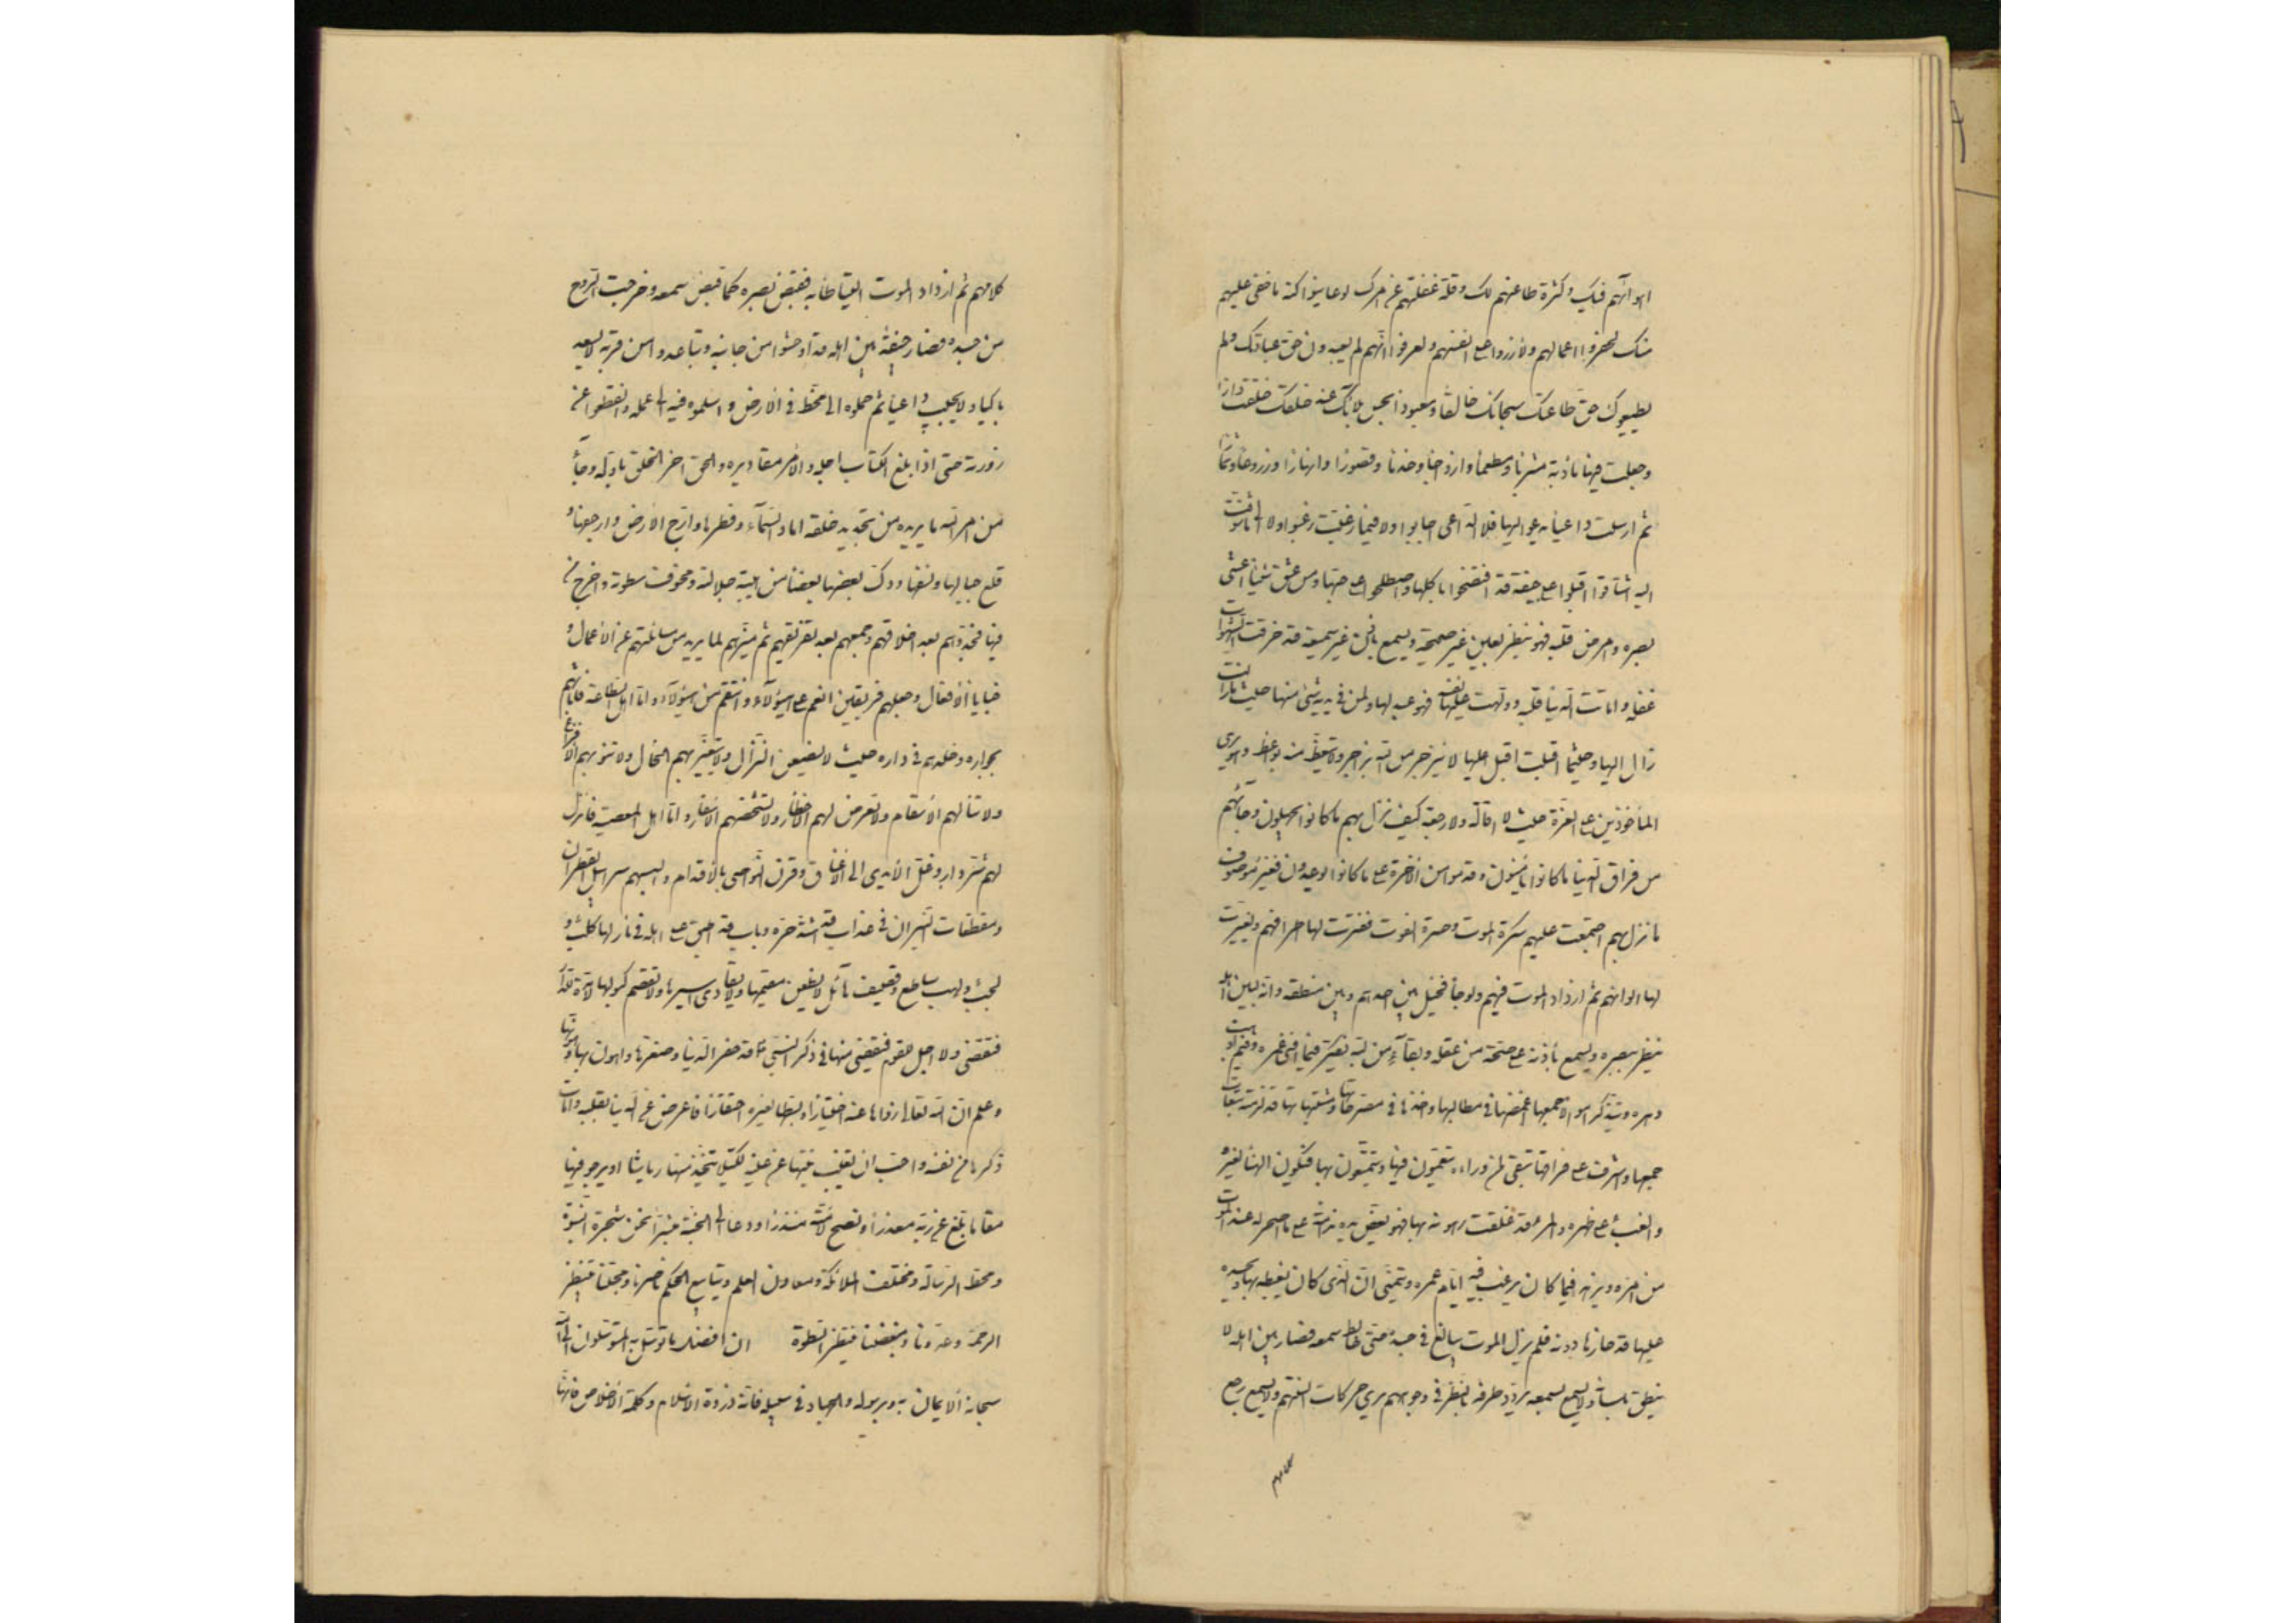 اهوائهم فيك وكثرة طاعتهم لك وقلة غفلتهم عن امرك لو عاينوا كنه ما خفى عليهم
منك لحقروا اعمالهم ولازروا على انفسهم ولعرفوا انهم لم يعبدوك حق عبادتك ولم
يطيعوك حق طاعتك سبحانك خالقا ومعبودا بحسن بلائك عند خلقك خلقت دارا
وجعلت فيها مأدبة مشربا ومطعما وازواجا وخدما وقصورا وانهارا وزروعا وثمارا
ثم ارسلت داعيا يدعو اليها فلا الداعى اجابوا ولا فيما رغبت رغبوا ولا الى ما شوقت
اليه اشتاقوا اقبلوا على جيفة قد افتضحوا باكلها واصطلحوا على حبها ومن عشق شيئا اعشى
بصره وامرض قلبه فهو ينظر بعين غير صحيحة ويسمع باذن غير سميعة قد خرقت الشهوات
عقله واماتت الدنيا قلبه وولهت عليها نفسه فهو عبد لها ولمن فى يديه شئ منها حيث ما زالت
زال اليها وحيثما اقبلت اقبل عليها لا ينزجر من الله بزاجر ولا يتعظ منه بواعظ وهو يرى
المأخوذين على الغرة حيث لا اقالة ولا رجعة كيف نزل بهم ما كانوا يجهلون وجائهم
من فراق الدنيا ما كانوا يأمنون وقدموا من الآخرة على ما كانوا يوعدون فغير موصوف
ما نزل بهم اجتمعت عليهم سكرة الموت وحسرة الفوت ففترت لها اطرافهم وتغيرت
لها الوانهم ثم ازداد الموت فيهم ولوجا فحيل بين احدهم وبين منطقه وانه لبين اهله
ينظر ببصره ويسمع بأذنه على صحة من عقله وبقاء من لبه يفكر فيما افنى عمره وفيم اذهب
دهره ويتذكر اموالا جمعها اغمض فى مطالبها واخذها فى مصرحاتها ومشتبهاتها قد لزمته تبعات
جمعها واشرف على فراقها تبقى لمن وراءه ينعمون فيها ويتمتعون بها فتكون المهنأ لغيره
والعبء على ظهره والمرء قد غلقت رهونه بها فهو يعض يده ندامة على ما اصحر له عند الموت
من امره ويزهد فيما كان يرغب فيه ايام عمره ويتمنى ان الذى كان يغبطه بها ويحسده
عليها قد حازها دونه فلم يزل الموت يبالغ فى جسده حتى خالط سمعه فصار بين اهله لا
ينطق بلسانه ولا يسمع بسمعه يردد طرفه بالنظر فى وجوههم يرى حركات السنتهم ولا يسمع رجع
كلامهم
كلامهم ثم ازداد الموت التياطا به فقبض بصره كما قبض سمعه وخرجت الروح
من جسده فصار جيفة بين اهله قد اوحشوا من جانبه وتباعدوا من قربه لا يسعد
باكيا ولا يجيب داعيا ثم حملوه الى مخط فى الارض واسلموه فيه الى عمله وانقطعوا عن
زورته حتى اذا بلغ الكتاب اجله والامر مقاديره والحق آخر الخلق باوله وجاء
من امر الله ما يريده من تجديد خلقه اماد السماء وفطرها وارج الارض وارجفها و
قلع جبالها ونسفها ودك بعضها بعضا من هيبة جلالته ومخوف سطوته واخرج من
فيها فجددهم بعد اخلاقهم وجمعهم بعد تفريقهم ثم ميزهم لما يريد من مسائلتهم عن الاعمال و
خبايا الافعال وجعلهم فريقين انعم على هؤلاء وانتقم من هؤلاء واما اهل الطاعة فاثابهم
بجواره وخلدهم فى داره حيث لا يضعن النزال ولا يتغير بهم الحال ولا تنوبهم الافزاع
ولا تنالهم الاسقام ولا تعرض لهم الاخطار ولا تشخصهم الاسفار واما اهل المعصية فانزلهم
لهم شر دار وغل الايدى الى الاعناق وقرن النواصى بالاقدام والبسهم سرابيل القطران
ومقطعات النيران فى عذاب قد اشتد حره وباب قد اطبق على اهله فى نار لها كلب و
لجب ولهب ساطع وقصيف هائل لا يظعن مقيمها ولا يفادى اسيرها ولا تفصم كبولها لا مدة للدار
فتفنى ولا اجل للقوم فيقضى منها فى ذكر النبى ع قد حقر الدنيا وصغرها واهون بها وهونها
وعلم ان الله تعالى زواها عنه اختيارا وبسطها لغيره احتقارا فاعرض عن الدنيا بقلبه وامات
ذكرها من نفسه واحب ان تغيب زينتها عن عينه لكيلا يتخذ منها رياشا او يرجو فيها
مقاما بلغ عن ربه معذرا ونصح لامته منذرا ودعا الى الجنة مبشرا نحن شجرة النبوة
ومحط الرسالة ومختلف الملائكة ومعادن العلم وينابيع الحكم ناصرنا ومحبنا ينتظر
الرحمة وعدونا ومبغضنا ينتظر السطوة ان افضل ما توسل به المتوسلون الى الله
سبحانه الايمان به وبرسوله والجهاد فى سبيله فانه ذروة الاسلام وكلمة الاخلاص فانها